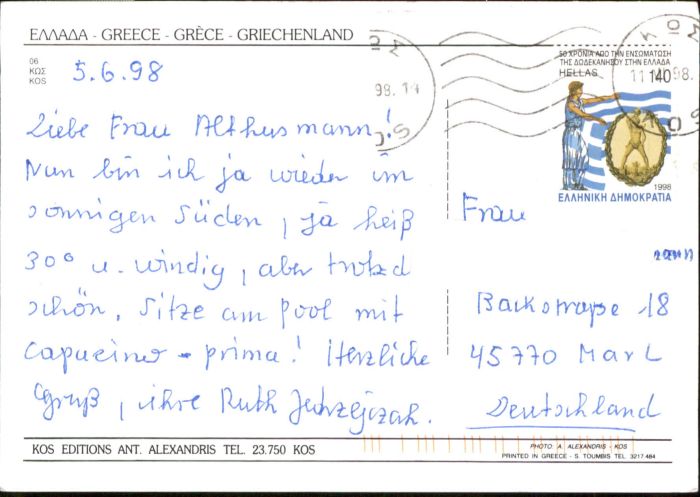 ΕΛΛΑΔΑ - GREECE - GRÈCE - GRIECHENLAND
06
ΚΩΣ
KOS
5.6.98
Liebe Frau Althusmann!
Nun bin ich ja wieder im
sonnigen Süden, ja heiß
30° u. windig, aber trotzd
schön. Sitze am Pool mit
Capucino - prima! Herzliche
Grüß, ihre Ruth
50 ΧΡΟΝΙΑ ΑΠΟ ΤΗΝ ΕΝΣΩΜΑΤΩΣΗ
ΤΗΣ ΔΩΔΕΚΑΝΗΣΟΥ ΣΤΗΝ ΕΛΛΑΔΑ
HELLAS 140
1998
ΕΛΛΗΝΙΚΗ ΔΗΜΟΚΡΑΤΙΑ
ΚΩΣ
98.
Frau
Backstraße 18
45770 Marl
Deutschland
KOS EDITIONS ANT. ALEXANDRIS TEL. 23.750 KOS
PHOTO: A. ALEXANDRIS - KOS
PRINTED IN GREECE - S. TOUMBIS TEL. 3217.484